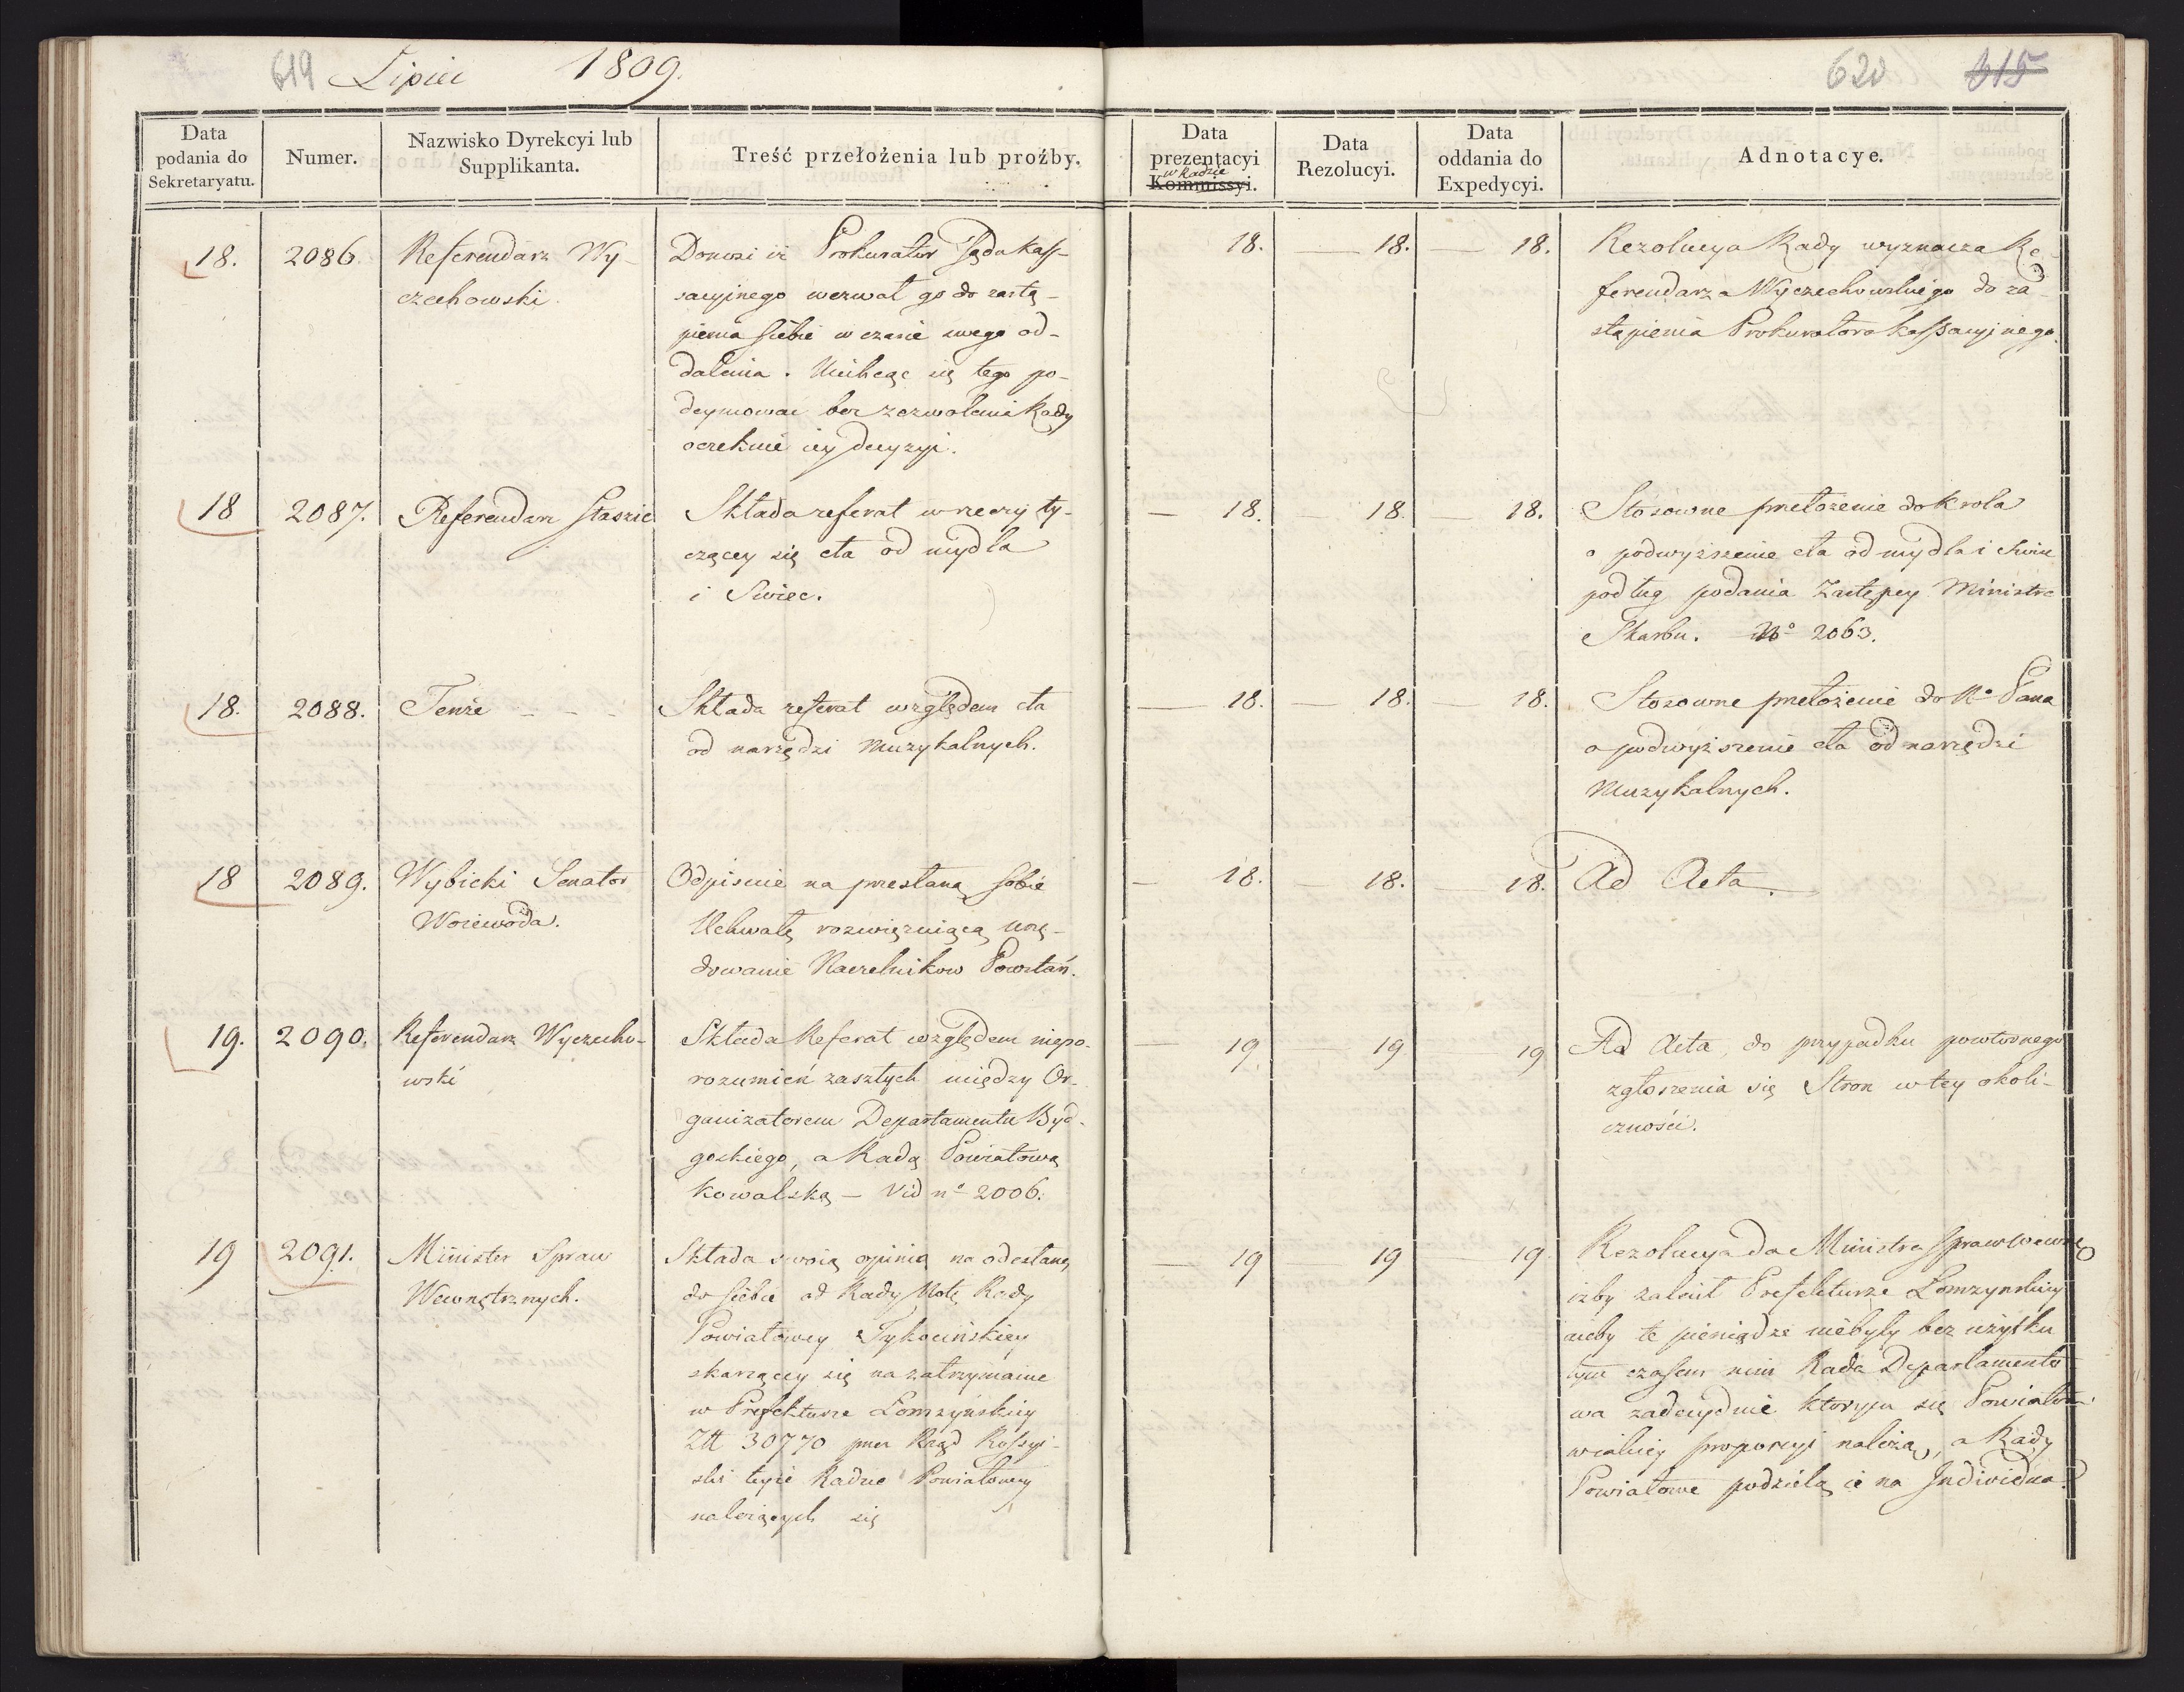 619 Lipiec 1809.
620 615
Data podania do Sekretaryatu.
Numer.
Nazwisko Dyrekcyi lub Supplikanta.
Treść przełożenia lub proźby.
Data prezentacyi w Radzie Kommissyi.
Data Rezolucyi.
Data oddania do Expedycyi.
Adnotacye.
18.
2086.
Referendarz Wy-
czechowski.
Donosi iż Prokurator Sądu Kass-
sacyjnego wezwał go do zastą-
pienia siebie w czasie swego od-
dalenia. Niechcąc się tego po-
deymować bez zezwolenia Rady
oczekuie iey decyzyi.
18. 18. 18.
Rezolucya Rady wyznacza Re-
ferendarza Wyczechowskiego do za-
stąpienia Prokuratora Kassacyjnego.
18
2087.
Referendarz Staszic
Składa referat w rzeczy ty-
czącey się cła od mydła
i Swiec.
18. 18. 18.
Stosowne przełożenie do Krola
o podwyższenie cła od mydła i swiec
podług podania Zastępcy Ministra
Skarbu. No 2063.
18.
2088.
Tenże
Składa referat względem cła
od narzędzi muzykalnych.
18. 18. 18.
Stosowne przełożenie do Nº Pana
o podwyższenie cła od narzędzi
Muzykalnych.
18
2089.
Wybicki Senator
Woiewoda.
Odpisuie na przesłaną sobie
Uchwałę rozwięzuiącą urzę-
dowanie Naczelnikow Powstań.
18. 18. 18.
Ad Acta.
19.
2090.
Referendarz Wyczecho-
wski
Składa Referat względem niepo-
rozumień zaszłych między Or-
ganizatorem Departamentu Byd-
goskiego, a Radą Powiatową
Kowalską — Vid nº 2006.
19 19 19
Ad Acta, do przypadku powtornego
zgłoszenia się Stron w tey okoli-
czności.
19
2091.
Minister Spraw
Wewnętrznych.
Składa swoią opinią na odesłaną
do siebie od Rady Notę Rady
Powiatowey Tykocińskiey
skarzącey się na zatrzymanie
w Prefekturze Łomżyńskiey
Złł 30770 przez Rząd Rossyi-
ski teyże Radzie Powiatowey
należących się
19 19 19
Rezolucya do Ministra Spraw Wewnę
izby zalecił Prefekturze Łomzynskiey
aieby te pieniądze niebyły bez użytku
tym czasem nim Rada Departamento
wa zadecyduie ktorym się Powiatom
w iakiey proporcyi należą, a Rady
Powiatowe podzielą ie na Individua.